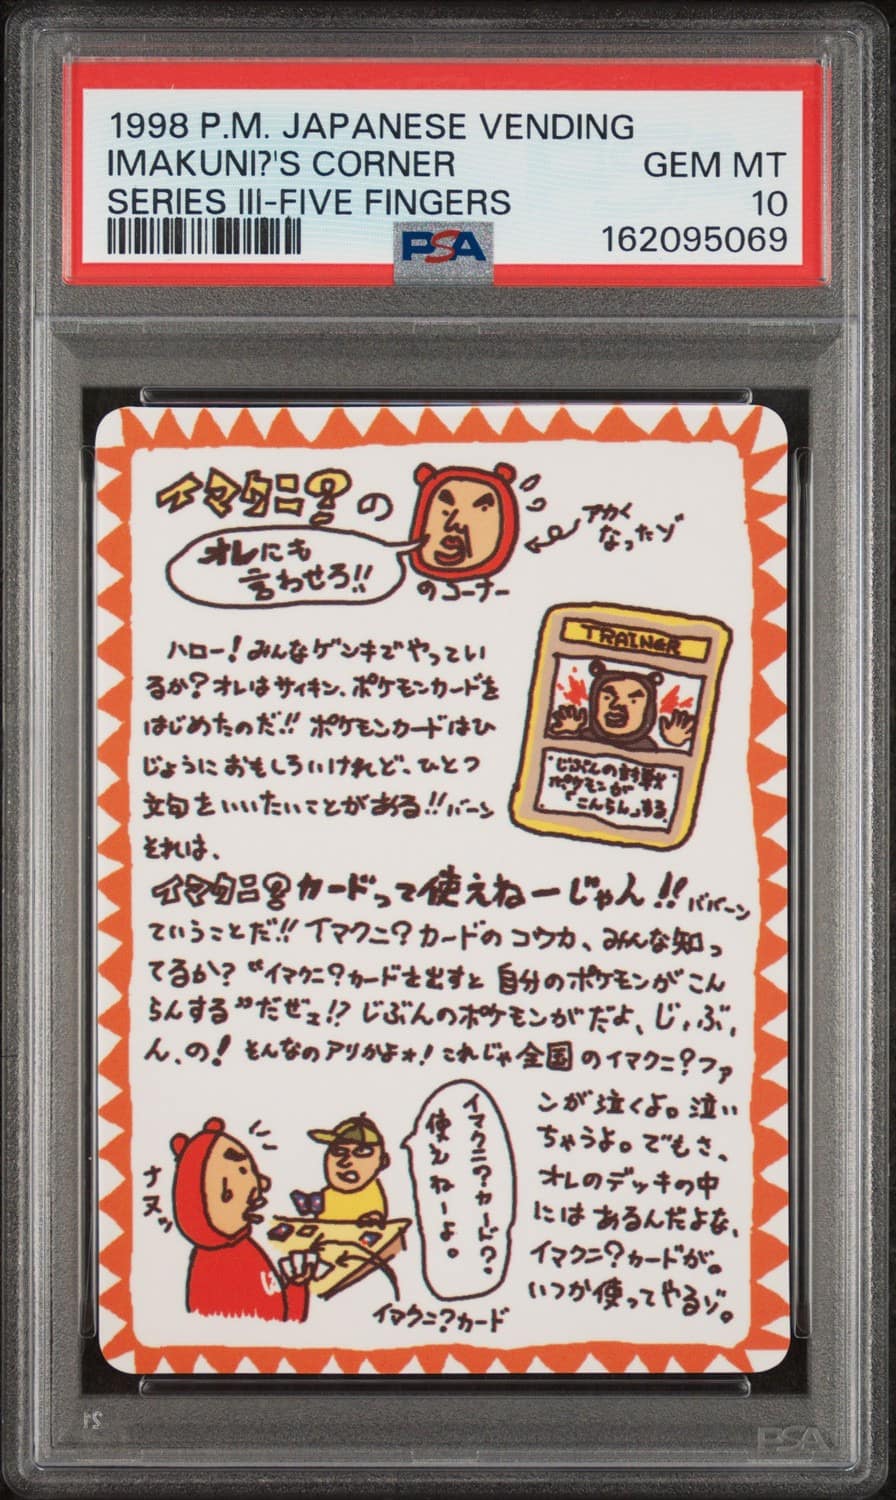 1998 P.M. JAPANESE VENDING
IMAKUNI?'S CORNER GEM MT
SERIES III-FIVE FINGERS 10
PSA 162095069
イマクニ?の
オレにも
言わせろ!!
のコーナー
アカく
なったゾ
TRAINER
"じぶんの対戦"
ポケモンが
「こんらん」する。
ハロー!みんなゲンキでやってい
るか?オレはサイキン、ポケモンカードを
はじめたのだ!!ポケモンカードはひ
じょうにおもしろいけれど、ひとつ
文句をいいたいことがある!!バーン
それは、
イマクニ?カードって使えねーじゃん!!ババーン
ていうことだ!!イマクニ?カードのコウカ、みんな知っ
てるか?"イマクニ?カードを出すと自分のポケモンがこん
らんする"だぜェ!?じぶんのポケモンがだよ、じ、ぶ、
ん、の!そんなのアリかよォ!これじゃ全国のイマクニ?ファ
ンが泣くよ。泣い
ちゃうよ。でもさ、
オレのデッキの中
にはあるんだよな、
イマクニ?カードが。
いつか使ってやるゾ。
イマクニ?カード?
使えねーよ。
ナヌッ
イマクニ?カード
PSA